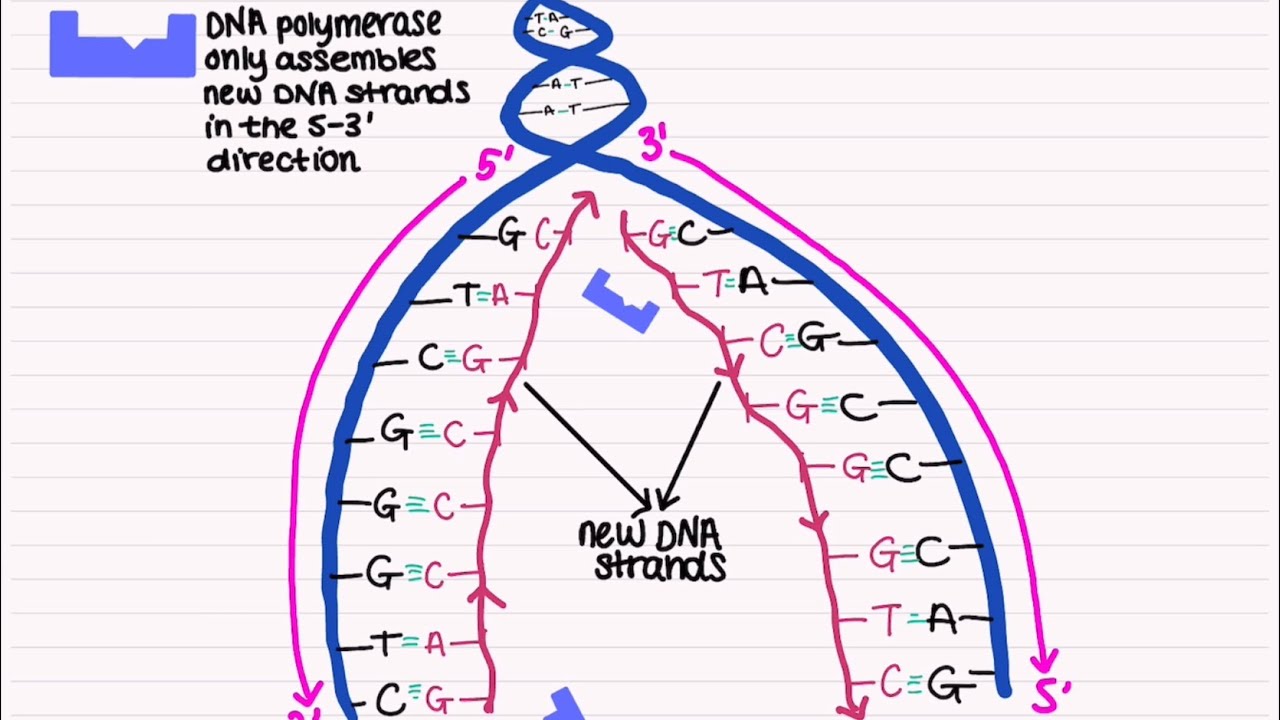 DNA polymerase
only assembles
new DNA strands
in the 5-3'
direction
T-A
C-G
A-T
A-T
5' 3'
G C G≡C
T=A T=A
C≡G C≡G
G≡C G≡C
G≡C G≡C
new DNA
strands
G≡C G≡C
T=A T=A
C≡G C≡G
5'